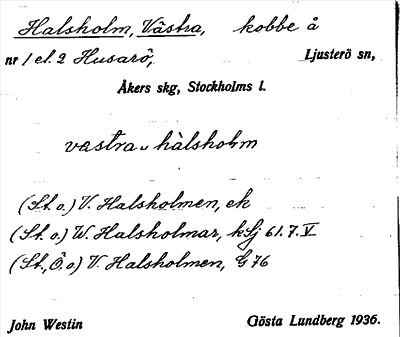 Halsholm, Västra, kobbe å
nr 1 el. 2 Husarö, Ljusterö sn,
Åkers skg, Stockholms l.
vastra hàlshoḷm
(St. o.) V. Halsholmen, ek
(St. o.) W. Halsholmar, kSj 61.7.V
(St., Ö. o) V. Halsholmen, G 76
John Westin Gösta Lundberg 1936.